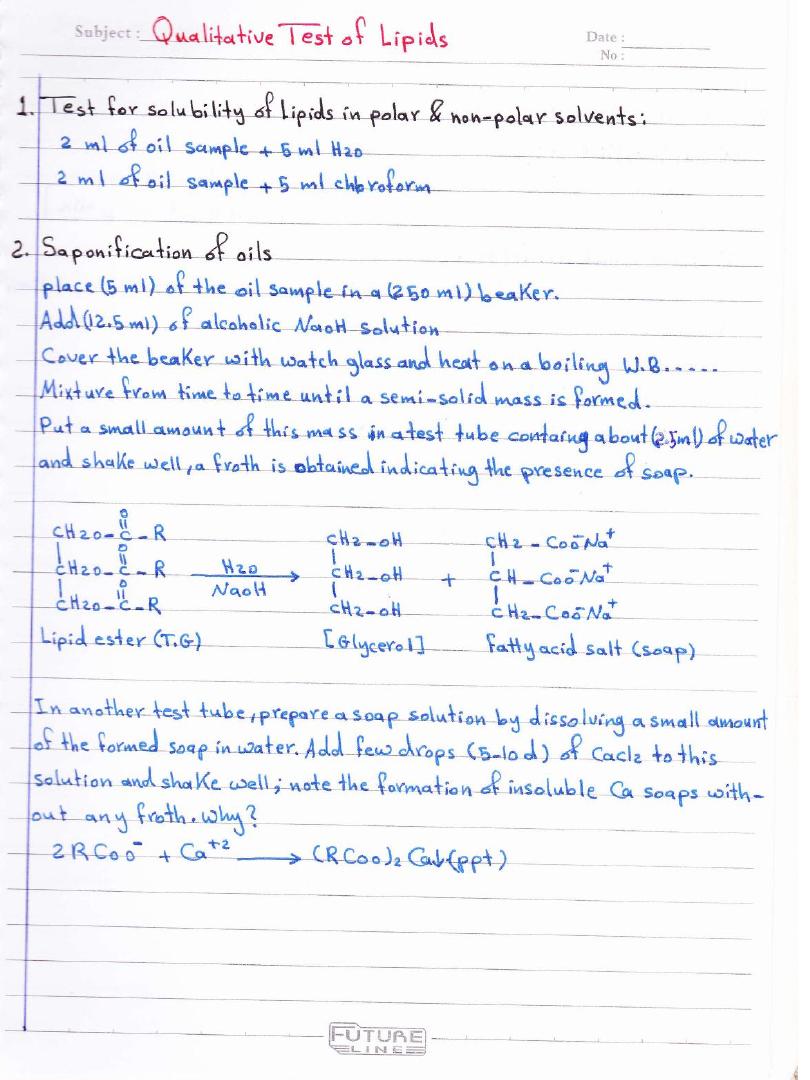 Subject : Qualitative Test of Lipids
Date :
No :
1. Test for solubility of Lipids in polar & non-polar solvents:
2 ml of oil sample + 5 ml H2O
2 ml of oil sample + 5 ml chloroform
2. Saponification of oils
place (5 ml) of the oil sample in a (250 ml) beaker.
Add (12.5 ml) of alcoholic NaOH solution
Cover the beaker with watch glass and heat on a boiling W.B.....
Mixture from time to time until a semi-solid mass is formed.
Put a small amount of this mass in a test tube containg about (2.5ml) of water
and shake well, a froth is obtained indicating the presence of soap.
O
CH2O-C-R CH2-OH CH2-COO⁻Na⁺
O
CH2O-C-R H2O NaOH → CH2-OH + CH-COO⁻Na⁺
O
CH2O-C-R CH2-OH CH2-COO⁻Na⁺
Lipid ester (T.G) [Glycerol] fatty acid salt (soap)
In another test tube, prepare a soap solution by dissolving a small amount
of the formed soap in water. Add few drops (5-10 d) of CaCl2 to this
solution and shake well; note the formation of insoluble Ca soaps with-
out any froth. why?
2RCOO⁻ + Ca⁺² → (RCOO)2 Ca↓(ppt)
FUTURE
LINE